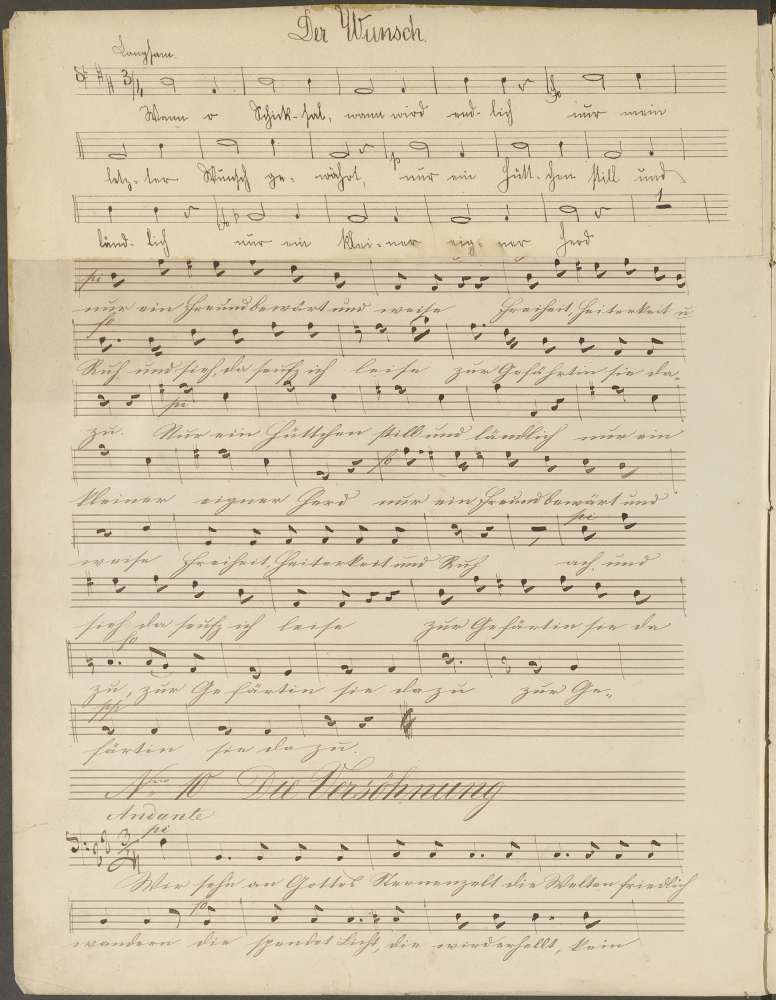 Der Wunsch
Langsam.
3/4
Wenn o Schick-sal, wann wird end-lich nur mein
letz-ter Wunsch ge-währt, nur ein Hütt-chen still und
länd-lich nur ein klei-ner eig-ner Herd
nur ein Freund bewärt und weise Freiheit, Heiterkeit u
Ruh und sieh, da seufz ich leise zur Gefährtin sie da-
zu. Nur ein Hüttchen still und ländlich nur ein
kleiner eigner Herd nur ein Freund bewärt und
weise Freiheit, Heiterkeit und Ruh ach, und
sieh da seufz ich leise zur Gefärtin sie da
zu, zur Gefärtin sie dazu zur Ge-
färtin sie dazu.
Nro 10 Die Versöhnung
Andante
3/4
Wir sehn an Gottes Sternenzelt die Welten friedlich
wandern die spendet Licht, die wird erhellt, kein